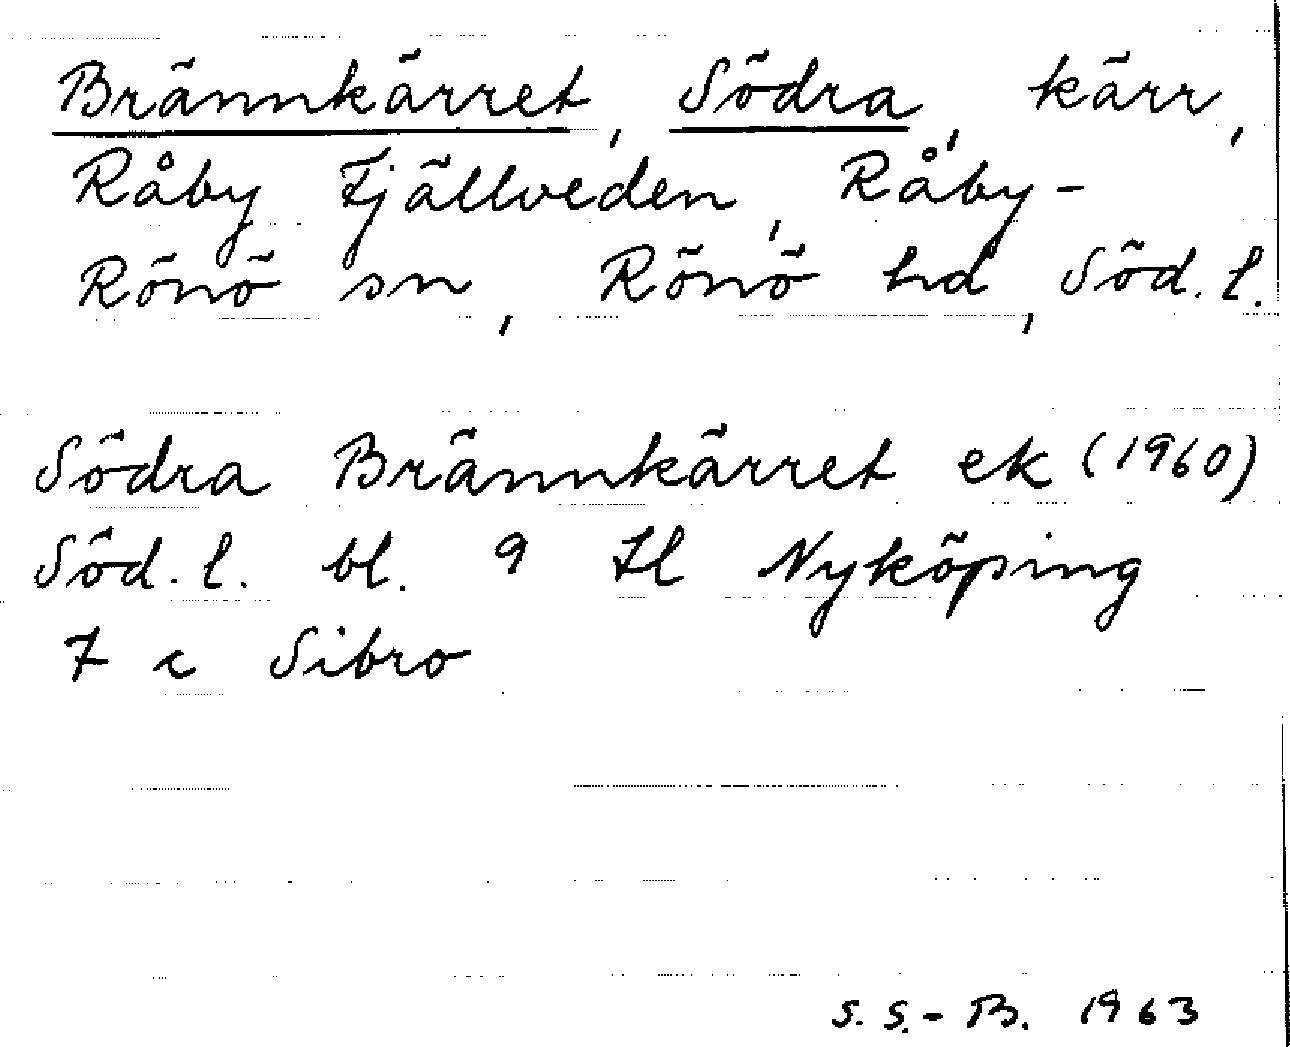 Brännkärret, Södra, kärr,
Råby Fjällveden, Råby-
Rönö sn, Rönö hd, Söd. l.
Södra Brännkärret ek (1960)
Söd. l. bl. 9 Fl Nyköping
7 c Sibro
S. S.-B. 1963